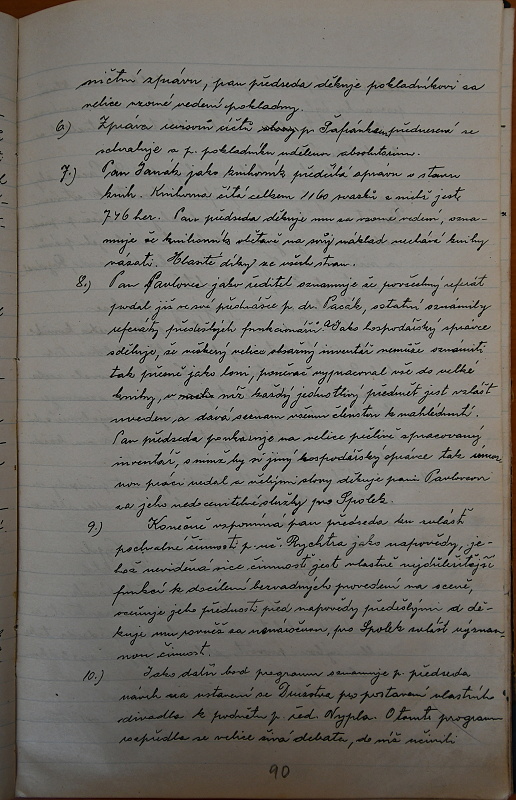 niční zprávu, pan předseda děkuje pokladníkovi za
velice vzorné vedení pokladny.
6.) Zpráva revisorů účtů p. Šafránkem přednesená se
schvaluje a p. pokladníku uděleno absolutorium.
7.) Pan Janák jako knihovník předčítá zprávu o stavu
knih. Knihovna čítá celkem 1160 svazků z nichž jest
746 her. Pan předseda děkuje mu za vzorné vedení, ozna-
muje že knihovník obětavě na svůj náklad nechává knihy
vázati. Hlasité díky ze všech stran.
8.) Pan Pavlovec jako ředitel oznamuje že povšechný referát
podal již ve své přednášce p. dr. Pacák, ostatní oznámily
referáty předešlých funkcionářů. Jako hospodářský správce
sděluje, že veškerý velice obsažný inventář nemůže oznámiti
tak přesně jako loni, poněvač vypracoval vše do velké
knihy, v níž každý jednotlivý předmět jest zvlášť
uveden a dává seznam všem členstvu k nahlédnutí.
Pan předseda poukazuje na velice pečlivě zpracovaný
inventář, s nímž by si jiný hospodářský správce tak
nou práci nedal a vřelými slovy děkuje panu Pavlovcovi
za jeho nedocenitelné služby pro Spolek.
9.) Konečně vzpomíná pan předseda ku zvlášť
pochvalné činnosti p. Rychtra jako nápovědy, je-
hož neviděná sice činnost jest vlastně nejdůležitější
funkcí k docílení bezvadných provedení na scéně,
oceňuje jeho přednosti před nápovědy předešlými a dě-
kuje mu rovněž za pro Spolek zvlášť význam-
nou činnost.
10.) Jako další bod programu oznamuje p. předseda
návrh na ustavení se Družstva pro postavení vlastního
divadla k podnětu p. řed. Vypla. O tomto programu
rozpředla se velice živá debata, do níž učinili
90